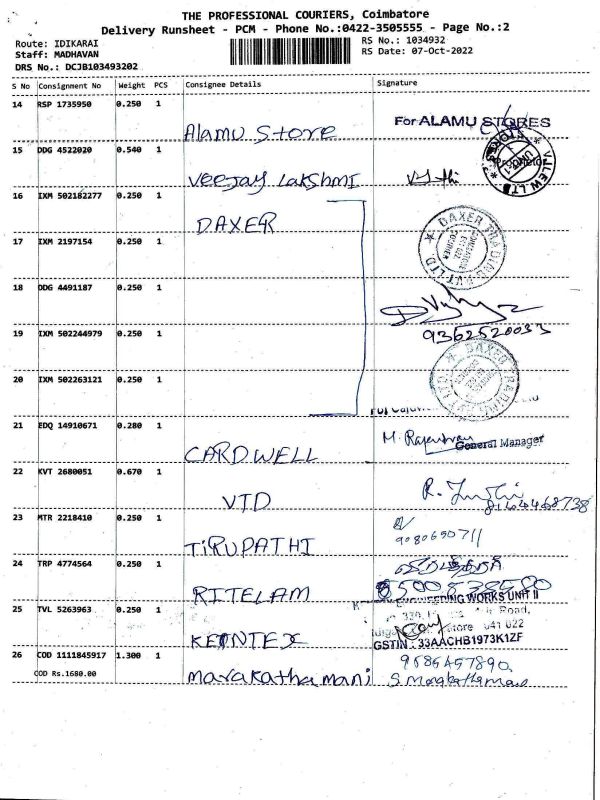 THE PROFESSIONAL COURIERS, Coimbatore
Delivery Runsheet - PCM - Phone No.:0422-3505555 - Page No.:2
Route: IDIKARAI
Staff: MADHAVAN
DRS No.: DCJB103493202
RS No.: 1034932
RS Date: 07-Oct-2022
S No Consignment No Weight PCS Consignee Details Signature
14 RSP 1735950 0.250 1 Alamu Store For ALAMU STORES
Proprietor
15 DDG 4522020 0.540 1 Veejay Lakshmi
16 IXM 502182277 0.250 1 DAXER DAXER TRADING PVT LTD
17 IXM 2197154 0.250 1
18 DDG 4491187 0.250 1
9362520033
19 IXM 502244979 0.250 1
DAXER TRADING
20 IXM 502263121 0.250 1
21 EDQ 14910671 0.280 1 CARDWELL M. Rajendran General Manager
22 KVT 2680051 0.670 1 VTD
23 MTR 2218410 0.250 1 TIRUPATHI
24 TRP 4774564 0.250 1 RITELAM
ENGINEERING WORKS UNIT II
25 TVL 5263963 0.250 1 KEONTEX
Road,
641 022
GSTIN : 33AACHB1973K1ZF
26 COD 1111845917 1.300 1 marakathamani
COD Rs.1680.00